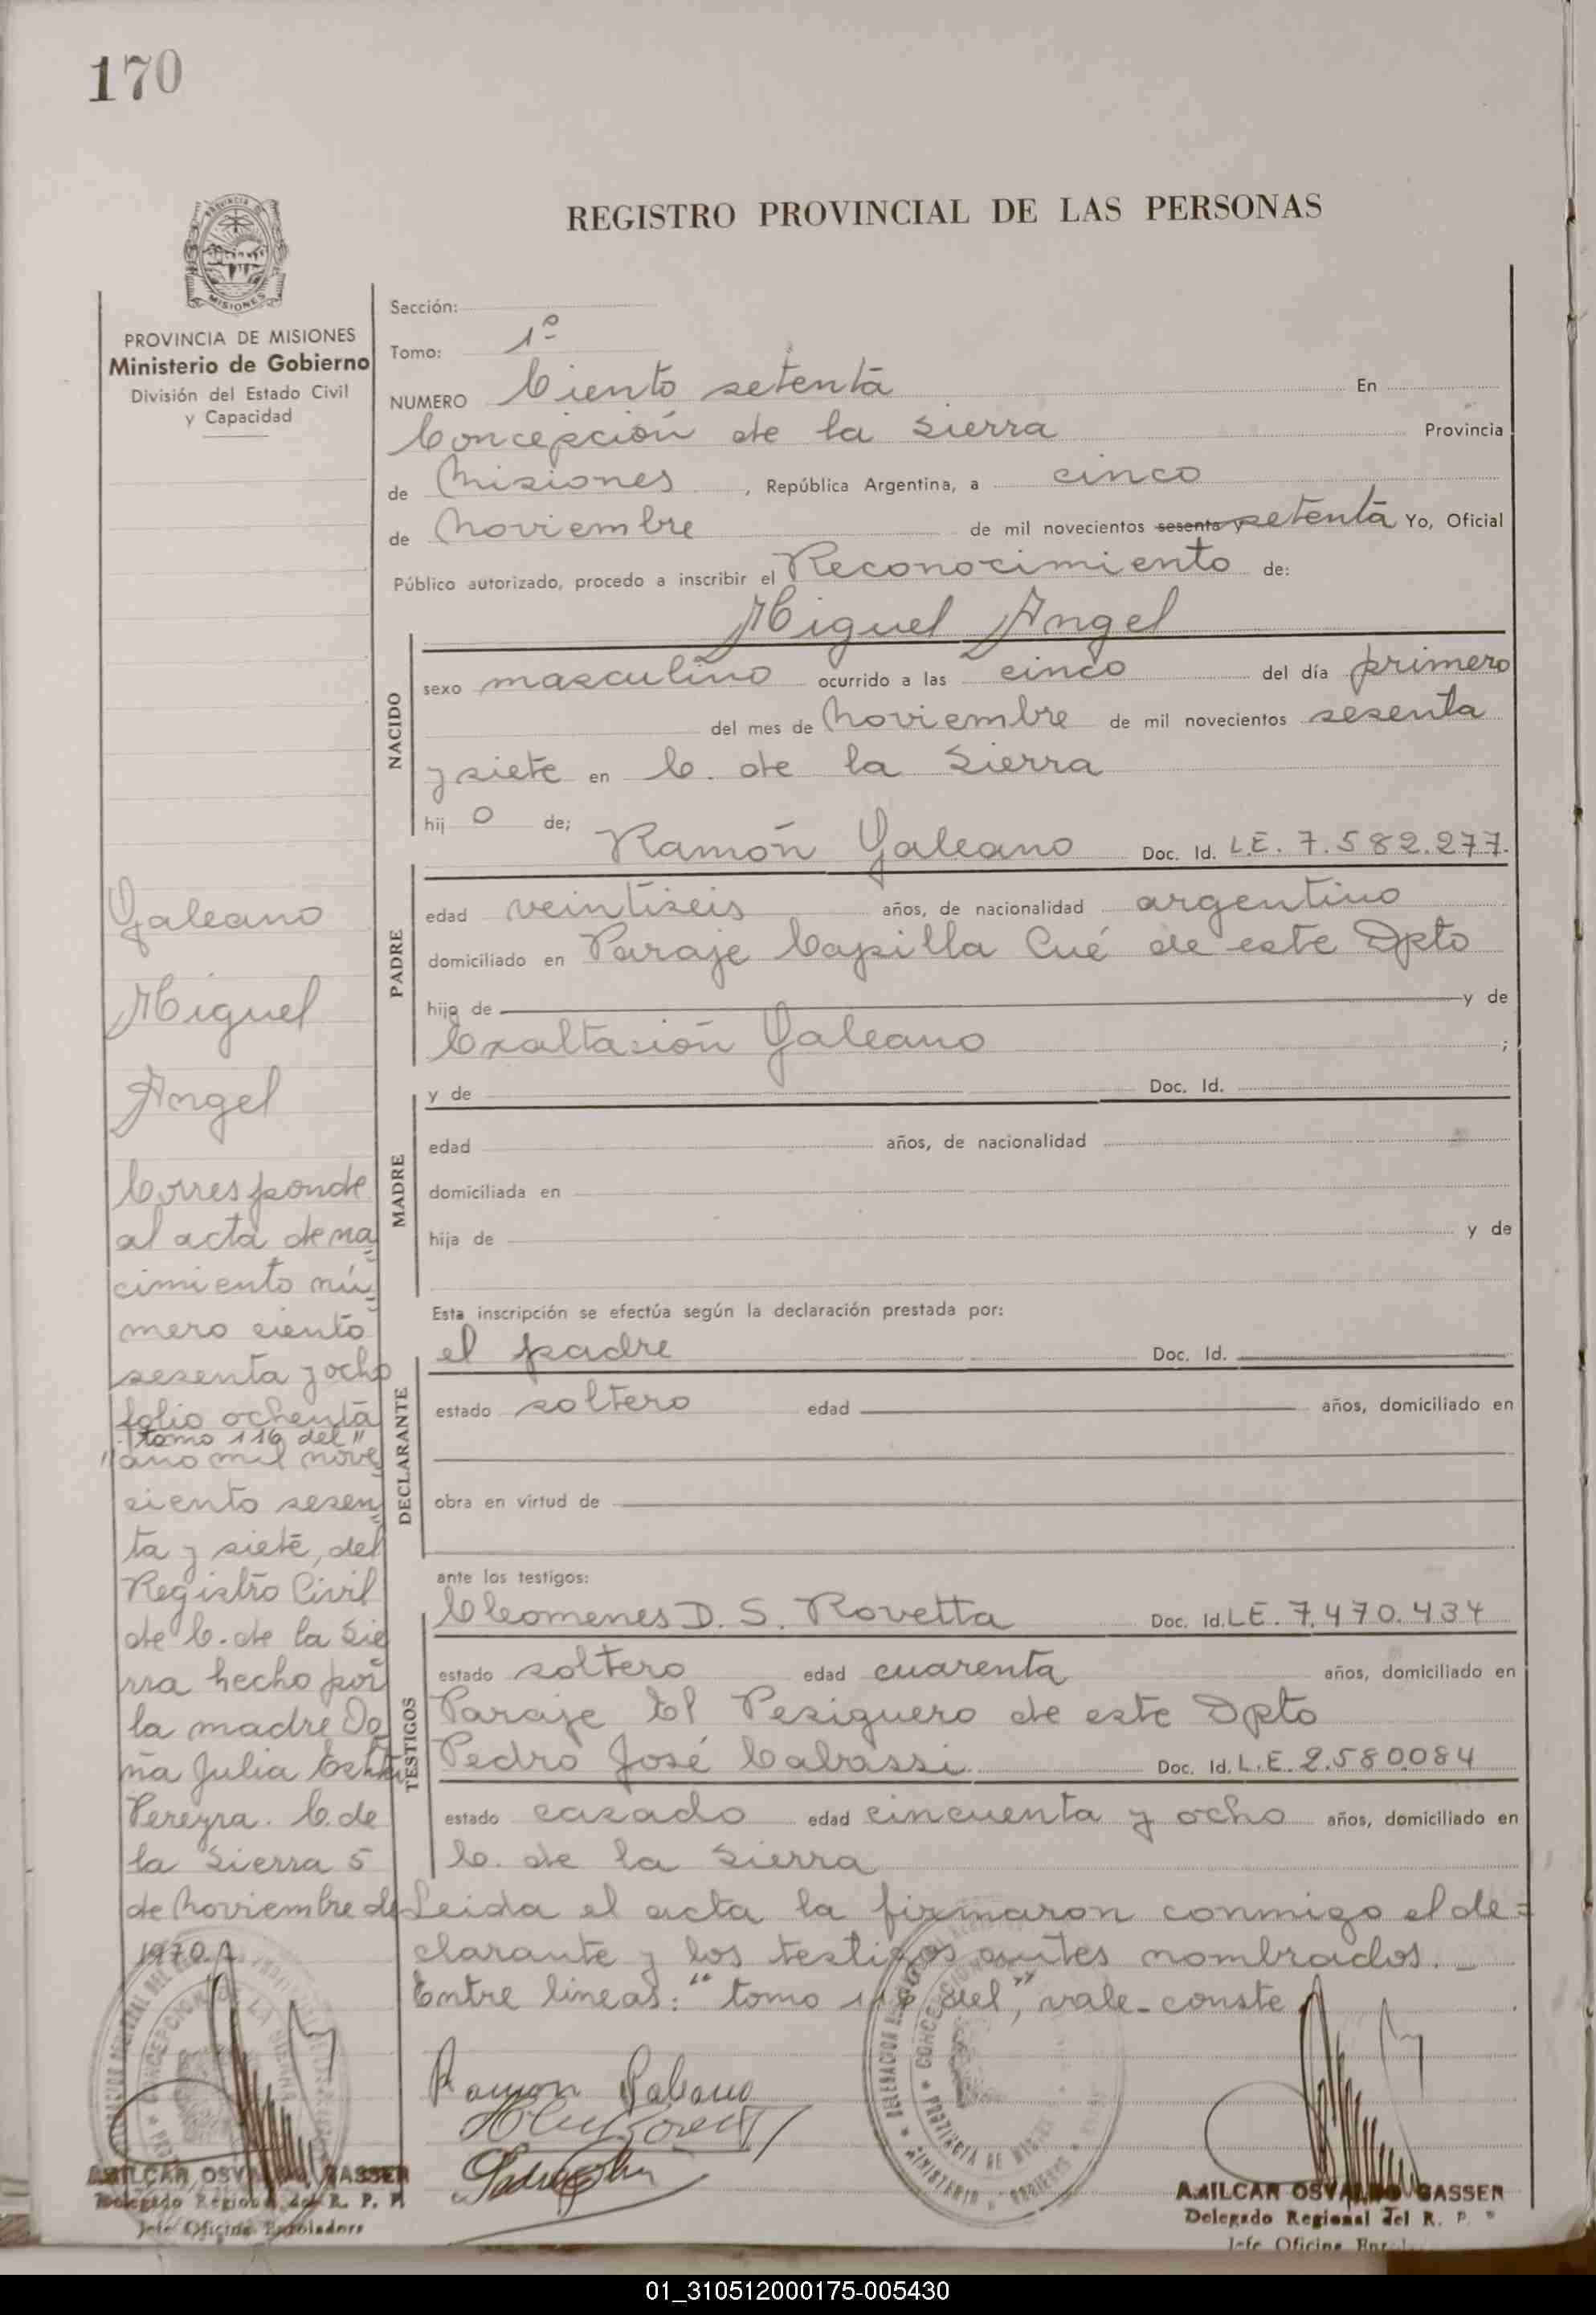 170
REGISTRO PROVINCIAL DE LAS PERSONAS
PROVINCIA DE MISIONES
Ministerio de Gobierno
División del Estado Civil
y Capacidad
Sección:
Tomo: 1º
NUMERO Ciento setenta En
Concepción de la Sierra Provincia
de Misiones, República Argentina, a cinco
de Noviembre de mil novecientos sesenta y setenta Yo, Oficial
Público autorizado, procedo a inscribir el Reconocimiento de:
Miguel Angel
NACIDO
sexo masculino ocurrido a las cinco del día primero
del mes de Noviembre de mil novecientos sesenta
y siete en C. de la Sierra
hij o de;
Ramón Galeano Doc. Id. L.E. 7.582.277.
PADRE
edad veintiseis años, de nacionalidad argentino
domiciliado en Paraje Capilla Cué de este Dpto
hijo de y de
Exaltasión Galeano ;
y de Doc. Id.
MADRE
edad años, de nacionalidad
domiciliada en
hija de y de
Esta inscripción se efectúa según la declaración prestada por:
el padre Doc. Id.
DECLARANTE
estado soltero edad años, domiciliado en
obra en virtud de
ante los testigos:
Cleomenes D. S. Rovetta Doc. Id. LE. 7.470.434
TESTIGOS
estado soltero edad cuarenta años, domiciliado en
Paraje El Pesiguero de este Dpto
Pedro José Cabassi Doc. Id. L.E. 2.580.084
estado casado edad cincuenta y ocho años, domiciliado en
C. de la Sierra
Leida el acta la firmaron conmigo el de=
clarante y los testigos antes nombrados._
Entre lineas: "tomo 116 del", vale-conste
Galeano
Miguel
Angel
Corresponde
al acta de na
cimiento nú
mero ciento
sesenta y ocho
folio ochenta
tomo 116 del
año mil nove
ciento sesen
ta y siete, del
Registro Civil
de C. de la Sie
rra hecho por
la madre Do
ña Julia
Pereyra. C. de
la Sierra 5
de Noviembre de
1970.
Ramon Galeano
AMILCAR OSVALDO GASSER
Delegado Regional del R. P. P.
Jefe Oficina Enroladora
AMILCAR OSVALDO GASSER
Delegado Regional del R. P.
Jefe Oficina
01_310512000175-005430